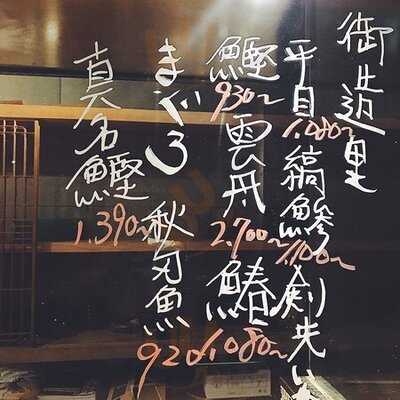 御造里
平目 1.080~ 縞鯵 1.100~ 剣先い
鰹 930~ 雲丹 2.700~ 鰆 1.080~
まぐろ 秋刀魚 920~
真名鰹 1.390~